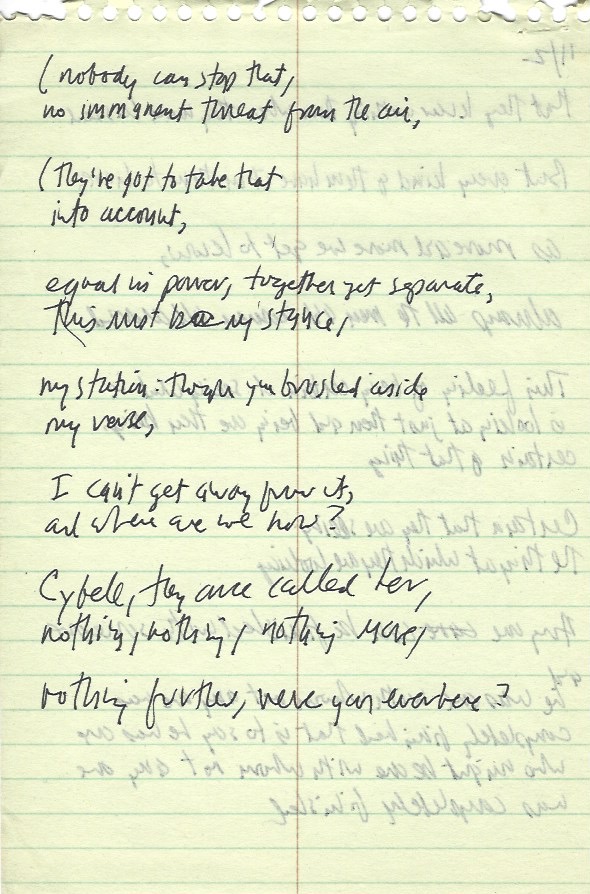 (nobody can stop that,
no immanent threat from the air,
(They've got to take that
into account,
equal in power, together yet separate,
This must be my stance,
my station: though you brushed aside
my verse,
I can't get away from it,
and where are we now?
Cybele, they once called her,
nothing, nothing, nothing more,
nothing further, were you ever here?